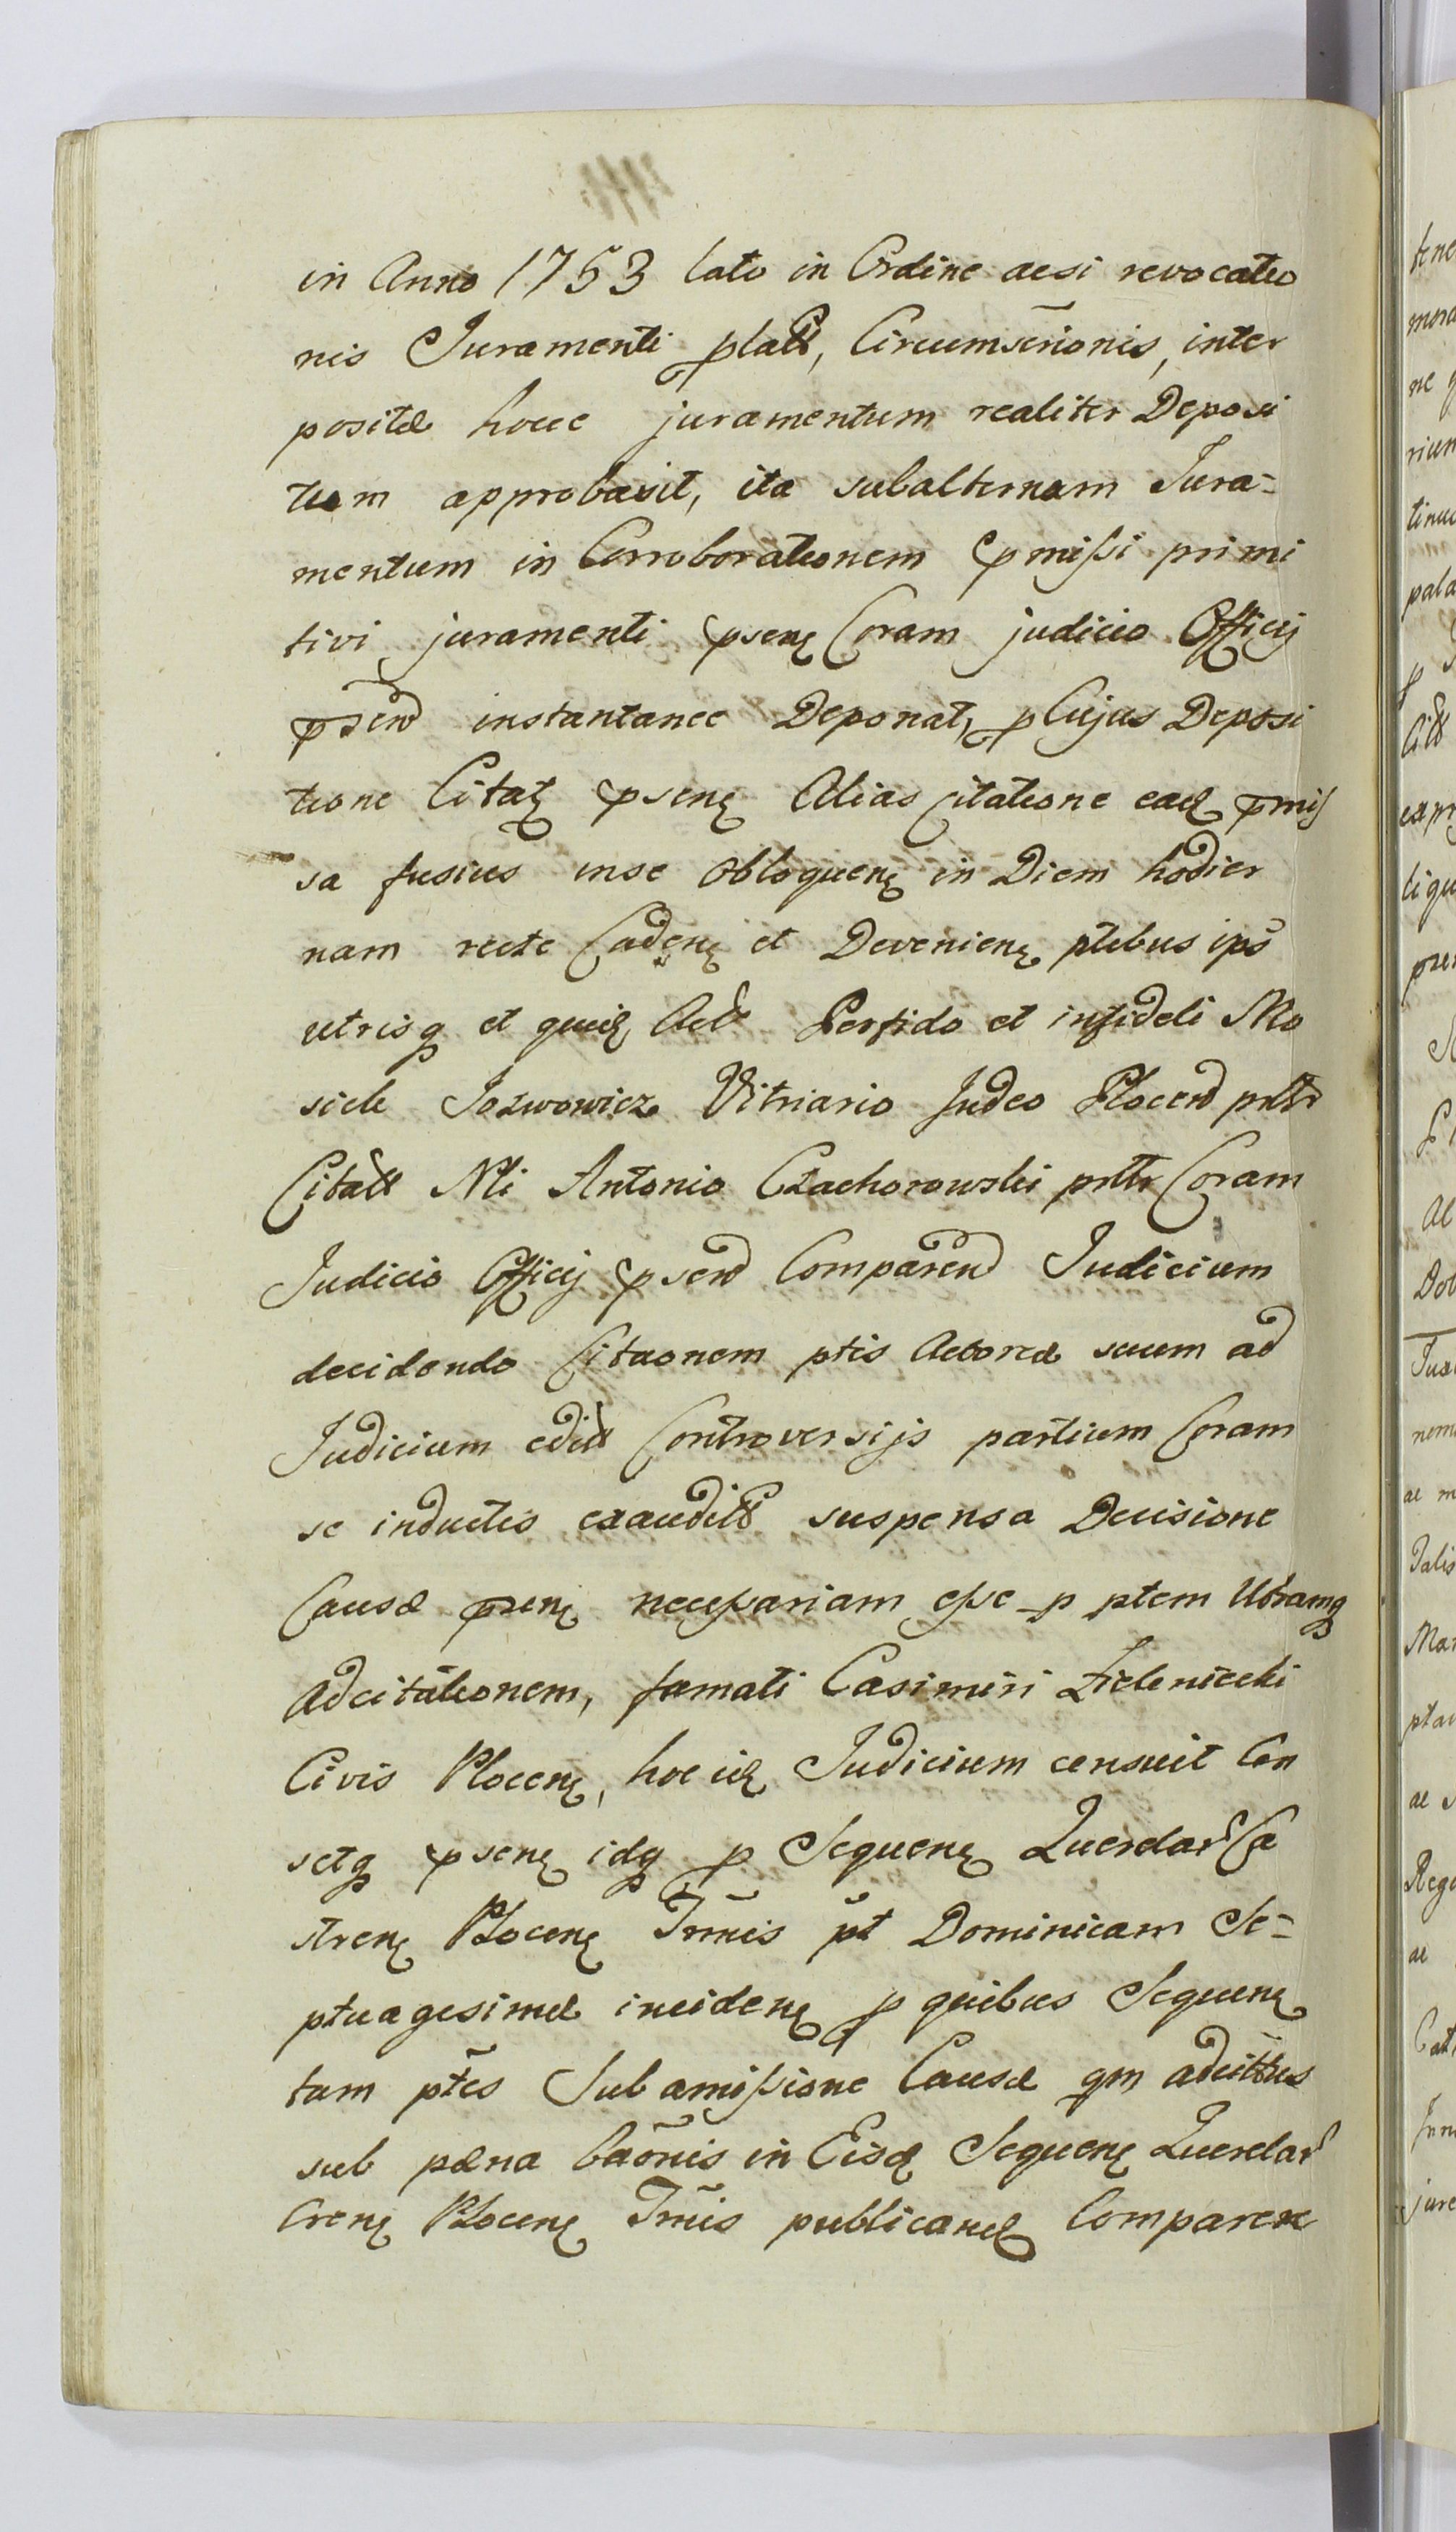 in Anno 1753 lato in Ordine acsi revocatio
nis Juramenti Circumscriõnis, inter
positæ hocce juramentum realiter Deposi
tum approbavit, ita subalternam Jura=
mentum in Corroborationem pmissi primi
tivi juramenti psenꝫ Coram judicio Officij
psen instantanee Deponat, p Cujus Deposi
tione Citatꝫ psenꝫ Alias Citatione eadꝫ pmis
sa fusius inse Obloquenꝫ in Diem hodier
nam recte Cadenꝫ et Devenienꝫ ptibus ips
utrisqꝫ et quidꝫ Act Perfido et infideli Mo
siek Jozwowicz Vitriario Judeo Plocen
Citatt Nli Antonio Czachorowski Coram
Judicio Officij psen Comparen Judicium
decidendo Citaonem ptis Actoreæ suum ad
Judicium editt Controversijs partium Coram
se inductis exauditt suspensa Decisione
Causæ psenꝫ necessariam esse p ptem Utramqꝫ
adcitationem, famati Casimiri Zieleniecki
Civis Plocenꝫ, hoc idꝫ Judicium censuit Cen
setqꝫ psenꝫ idqꝫ p Sequenꝫ Querelar Ca
strenꝫ Plocenꝫ Trmis pt Dominicam Se=
ptuagesimæ incidenꝫ p quibus Sequenꝫ
tam ptes Sub amissione Causæ qm adcittus
sub pæna baõnis in Eisdꝫ Sequenꝫ Querelar
Crenꝫ Plocenꝫ Trmis publicandꝫ Comparere